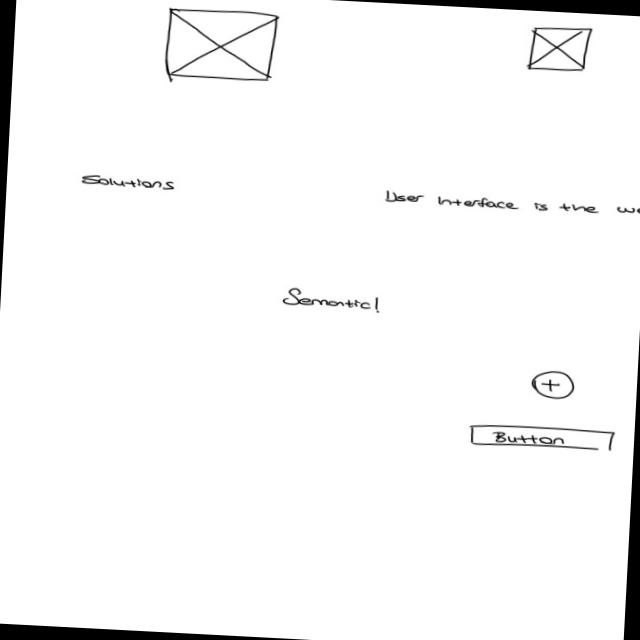 Solutions
User Interface is the
Semantic!
+
Button